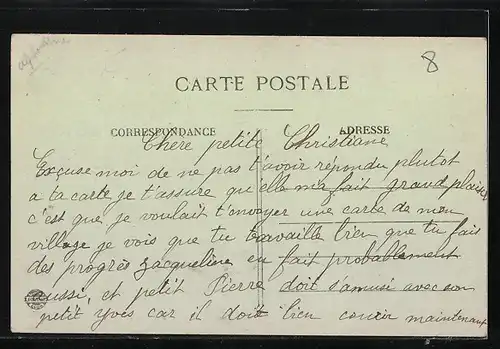 8
CARTE POSTALE
CORRESPONDANCE
ADRESSE
Chère petite Christiane
Excuse moi de ne pas t'avoir répondu plutot
a ta carte je t'assure qu'elle m'a fait grand plaisir
c'est que je voulait t'envoyer une carte de mon
village je vois que tu travaille bien que tu fais
des progrès Jacqueline en fait probablement
aussi, et petit Pierre doit s'amusi avec son
petit Yves car il doit bien courir maintenant